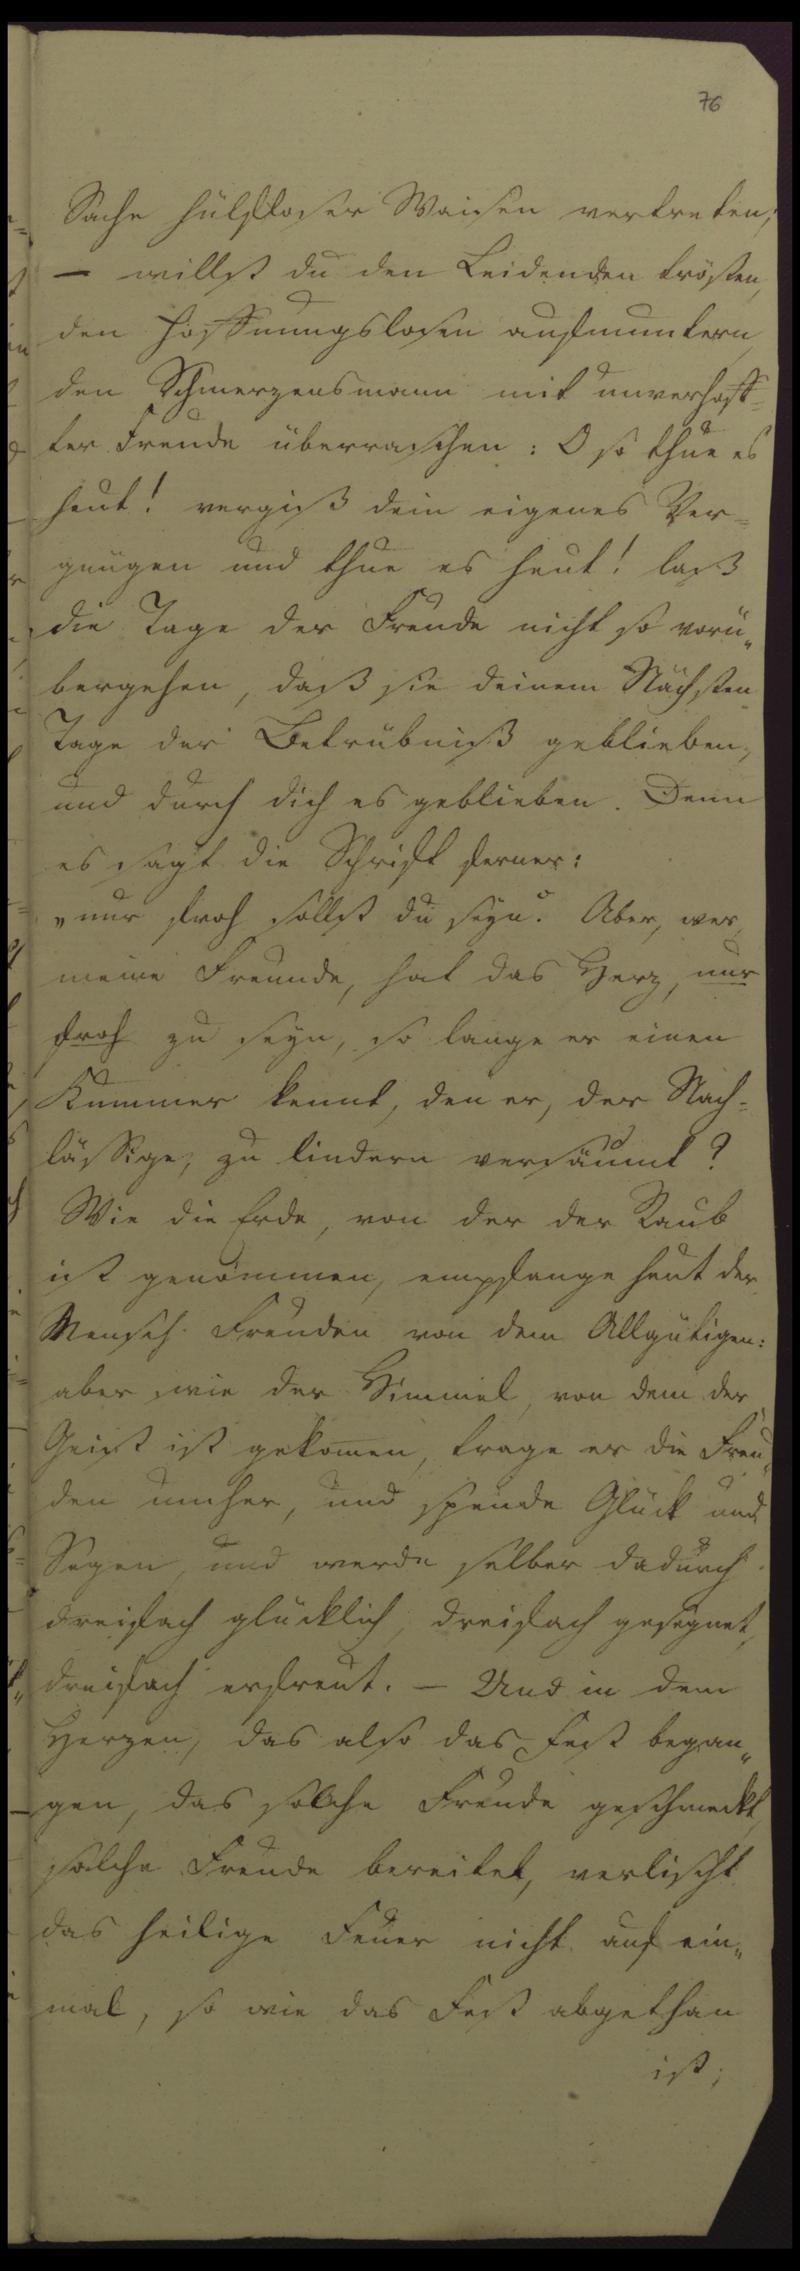 76
Sache hülfloser Waisen vertreten;
— willst du den Leidenden trösten,
den Hoffnungslosen aufmuntern,
den Schmerzensmann mit unverhoff=
ter Freude überraschen: O so thue es
heut! vergiß dein eigenes Ver=
gnügen und thue es heut! laß
die Tage der Freude nicht so vorü„
bergehen, daß sie deinem Nächsten
Tage der Betrübniß geblieben,
und durch dich es geblieben. Denn
es sagt die Schrift ferner:
„nur froh sollst du seyn“. Aber, wer,
meine Freunde, hat das Herz, nur
froh zu seyn, so lange er einen
Kummer kennt, den er, der Nach=
lässige, zu lindern versäumt?
Wie die Erde, von der der Staub
ist genommen, empfange heut der
Mensch Freuden von dem Allgütigen:
aber wie der Himmel, von dem der
Geist ist gekom̅en, trage er die Freu„
den umher, und spende Glück und
Segen, und werde selber dadurch
dreifach glücklich, dreifach gesegnet,
dreifach erfreut. — Und in dem
Herzen, das also das Fest began„
gen, das solche Freude geschmeckt,
solche Freude bereitet, verlischt
das heilige Feuer nicht auf ein„
mal, so wie das Fest abgethan
ist;